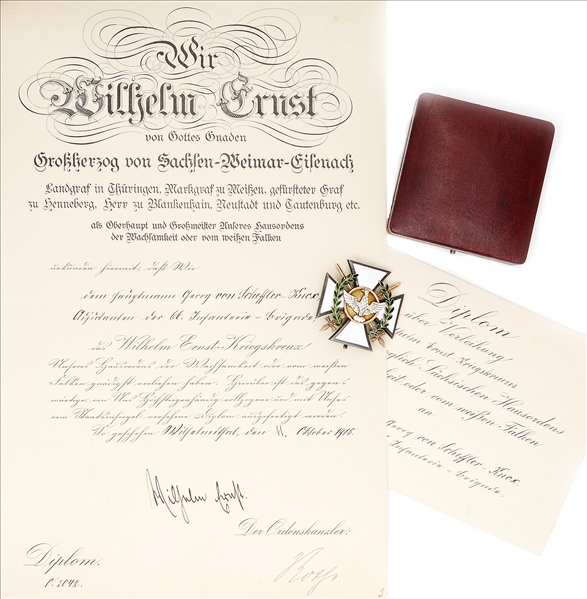 Wir
Wilhelm Ernst
von Gottes Gnaden
Großherzog von Sachsen-Weimar-Eisenach
Landgraf in Thüringen, Markgraf zu Meißen, gefürsteter Graf
zu Henneberg, Herr zu Blankenhain, Neustadt und Tautenburg etc.
als Oberhaupt und Großmeister Unseres Hausordens
der Wachsamkeit oder vom weißen Falken
urkunden hiermit, daß Wir
dem Hauptmann Georg von Scheffler-Knox
Adjutanten der 66. Infanterie-Brigade
das Wilhelm Ernst-Kriegskreuz
Unseres Hausordens der Wachsamkeit oder vom weißen
Falken gnädigst verliehen haben. Hierüber ist das gegen-
wärtige von Uns Höchsteigenhändig vollzogene und mit Unserem
Diplom ausgefertigt worden.
So geschehen Wilhelmsthal, den 11. Oktober 1915.
Wilhelm Ernst.
Der Ordenskanzler:
Diplom:
C. 2042.
Diplom
über Verleihung
Wilhelm Ernst Kriegskreuzes
Sächsischen Hausordens
oder vom weißen Falken
an
Georg von Scheffler-Knox
Infanterie-Brigade.